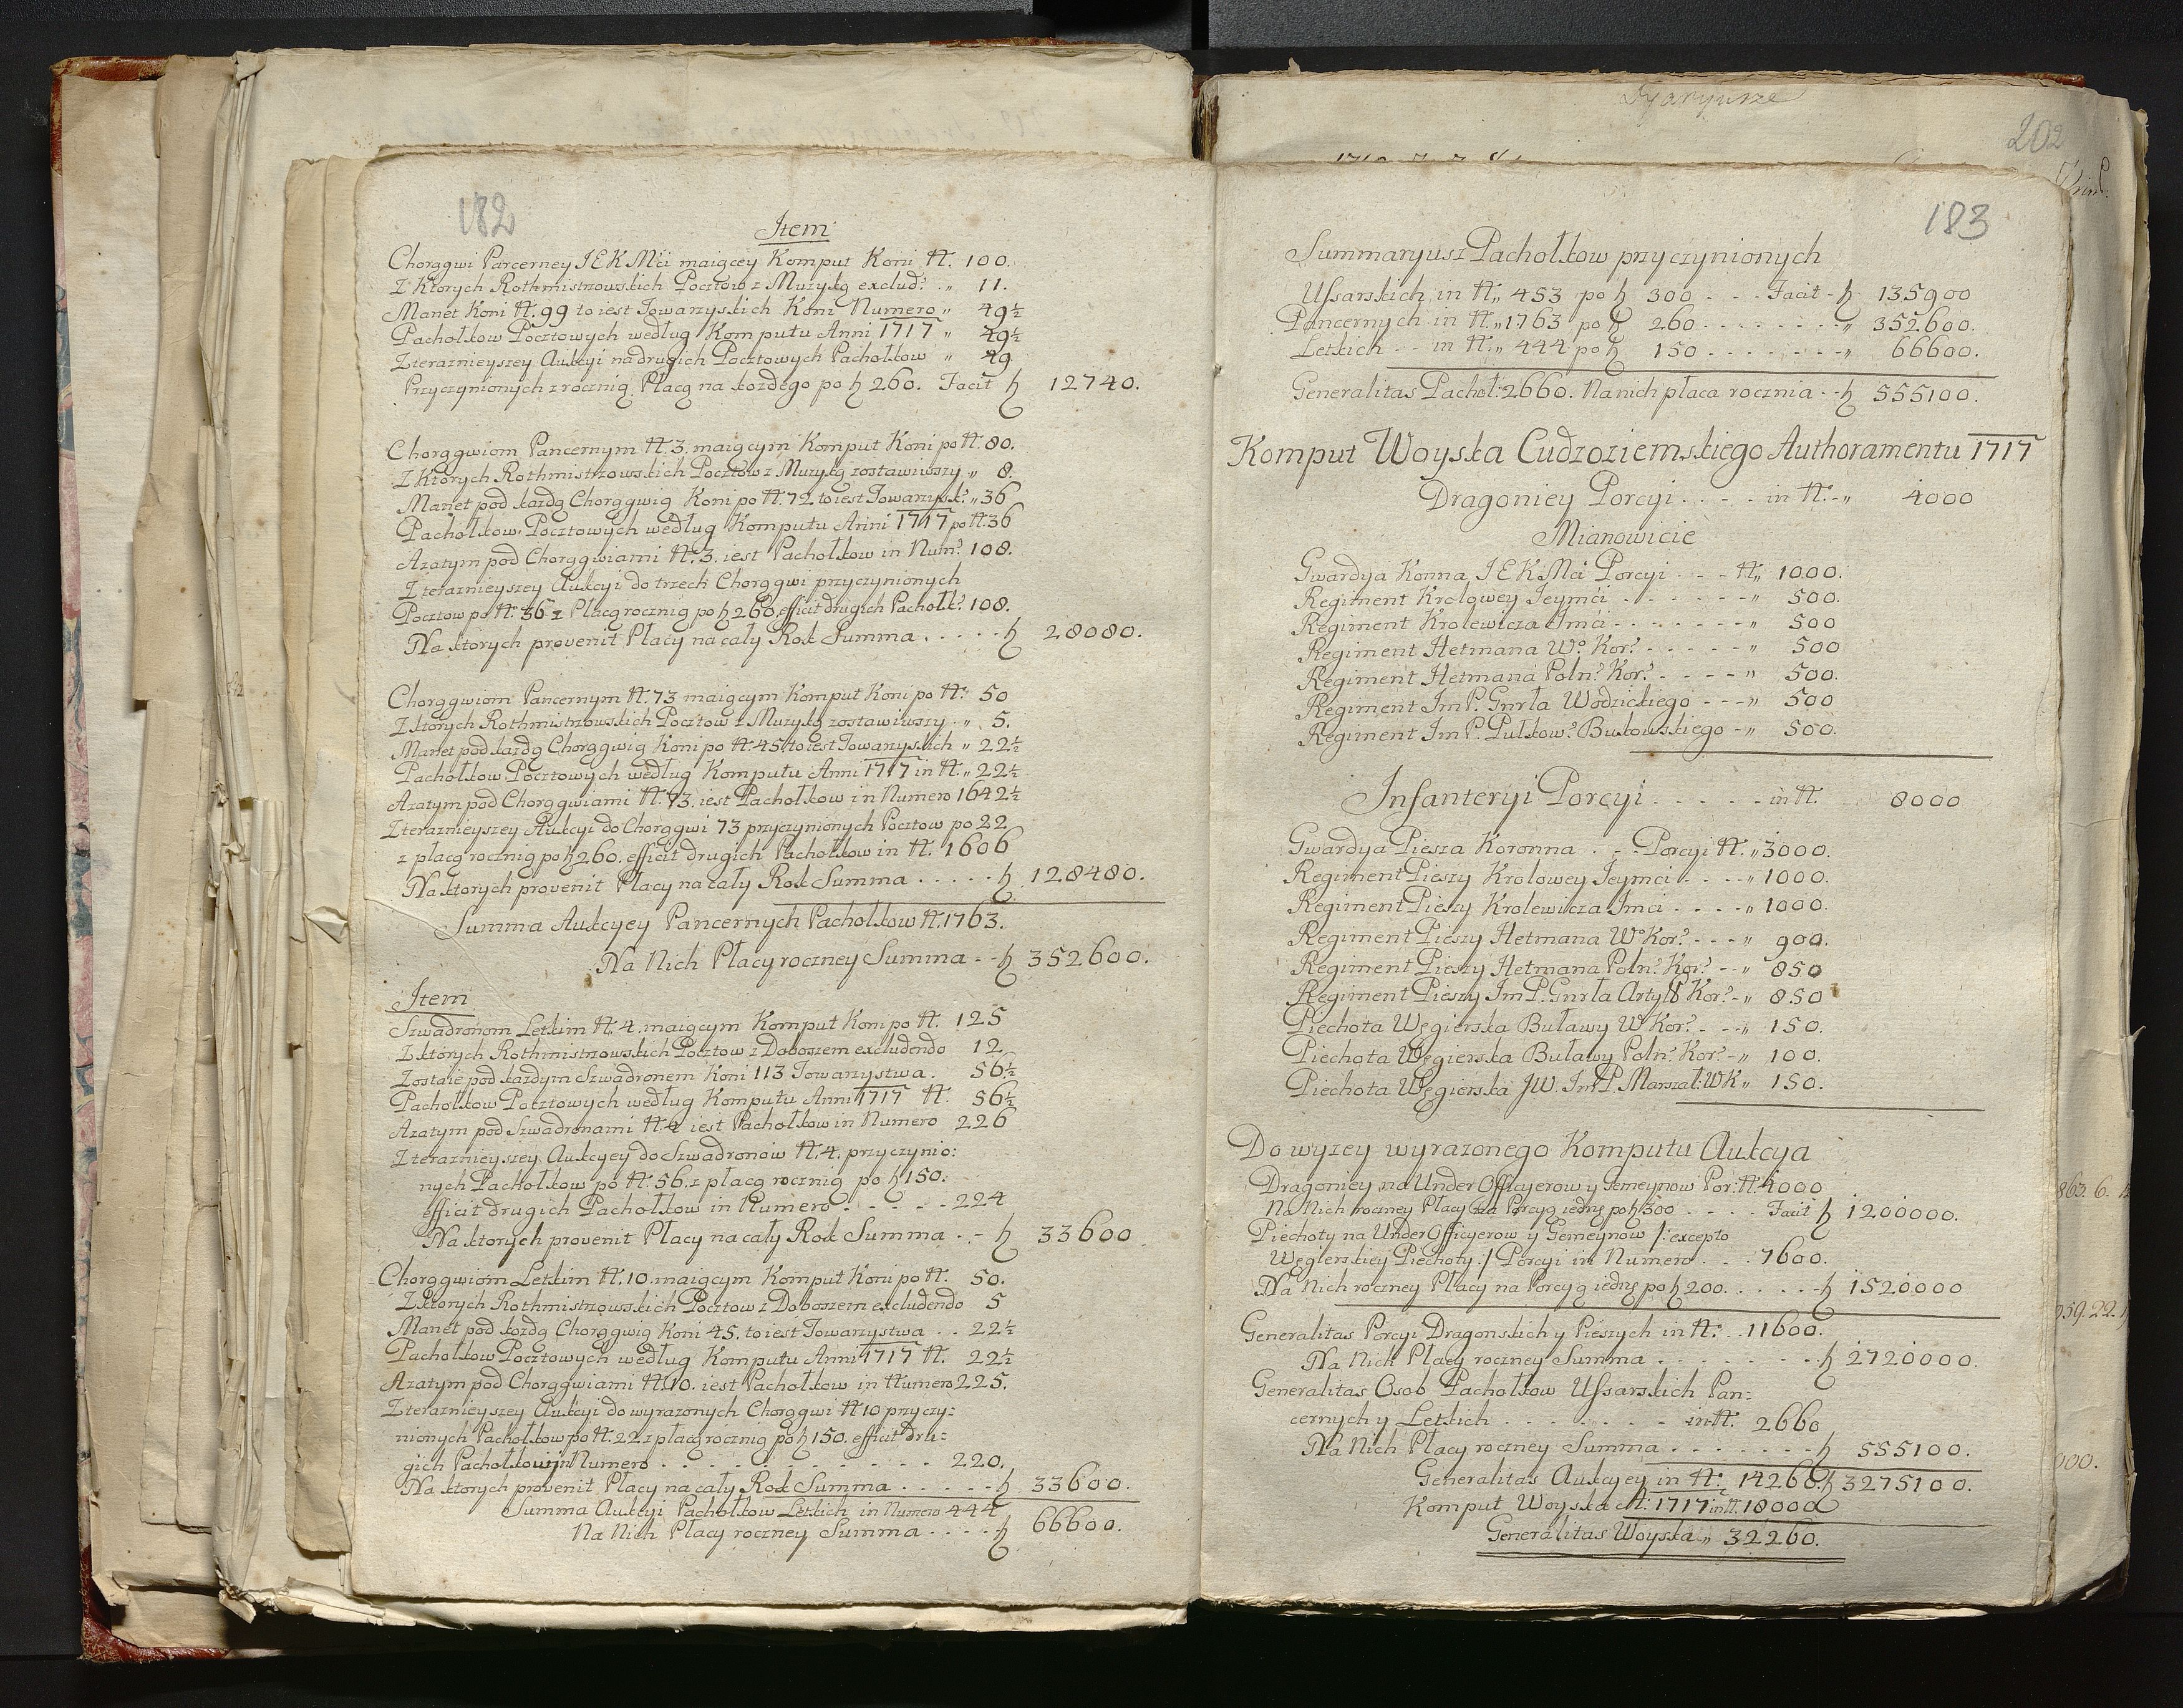 182
Item
Chorągwi Pancerney JEKMći maiącey Komput Koni N. 100.
Z ktorych Rothmistrzowskich Pocztow z Muzyką exclud? „ 11.
Manet Koni N. 99 to iest Towarzyskich Koni Numero „ 49½
Pachołkow Pocztowych według Komputu Anni 1717 „ 49½
Z teraznieyszey Aukcyi na drugich Pocztowych Pachołkow „ 49
Przyczynionych z rocznią Płacą na kożdego po ƶ 260. Facit ƶ 12740.
Chorągwiom Pancernym N. 3. maiącym Komput Koni po N. 80.
Z Ktorych Rothmistrzowskich Pocztow z Muzyką zostawiwszy „ 8.
Manet pod każdą Chorągwią Koni po N. 72. to iest Towarzysk? „ 36
Pachołkow Pocztowych według Komputu Anni 1717 po N. 36
A zatym pod Chorągwiami N. 3. iest Pachołkow in Num? 108.
Z teraznieyszey Aukcyi do trzech Chorągwi przyczynionych
Pocztow po N. 36 z Płacą rocznią po ƶ 260 efficit drugich Pachołk? 108.
Na ktorych provenit Płacy na cały Rok Summa . . . . . ƶ 28080.
Chorągwiom Pancernym N. 73 maiącym Komput Koni po N. 50
Z ktorych Rothmistrzowskich Pocztow z Muzyką zostawiwszy „ 5.
Manet pod każdą Chorągwią Koni po N. 45 to iest Towarzyskich „ 22½
Pachołkow Pocztowych według Komputu Anni 1717 in N. „ 22½
A zatym pod Chorągwiami N. 73. iest Pachołkow in Numero 1642½
Z teraznieyszey Aukcyi do Chorągwi 73 przyczynionych Pocztow po 22
z płacą rocznią po ƶ 260. efficit drugich Pachołkow in N. 1606
Na ktorych provenit Płacy na cały Rok Summa . . . . . ƶ 128480.
Summa Aukcyey Pancernych Pachołkow N. 1763.
Na Nich Płacy roczney Summa - - ƶ 352600.
Item
Szwadronom Letkim N. 4. maiącym Komput Koni po N. 125
Z ktorych Rothmistrzowskich Pocztow z Doboszem excludendo 12
Zostaie pod każdym Szwadronem Koni 113 Towarzystwa . 56½
Pachołkow Pocztowych według Komputu Anni 1717 N. 56½
A zatym pod Szwadronami N. 4 iest Pachołkow in Numero 226
Z teraznieyszey Aukcyey do Szwadronow N. 4. przyczynio:
nych Pachołkow po N. 56. z płacą rocznią po ƶ 150.
efficit drugich Pachołkow in Numero . . . . . 224
Na ktorych provenit Płacy na cały Rok Summa . - ƶ 33600
Chorągwiom Letkim N. 10. maiącym Komput Koni po N. 50.
Z ktorych Rothmistrzowskich Pocztow z Doboszem excludendo 5
Manet pod kozdą Chorągwią Koni 45. to iest Towarzystwa . . 22½
Pachołkow Pocztowych według Komputu Anni 1717 N. 22½
A zatym pod Chorągwiami N. 10. iest Pachołkow in Numero 225.
Z teraznieyszey Aukcyi do wyrazonych Chorągwi N 10 przyczy=
nionych Pachołkow po N. 22 z płacą rocznią po ƶ 150. efficit dru=
gich Pachołkow in Numero . . . . . . . . . 220.
Na ktorych provenit Płacy na cały Rok Summa . . . . . ƶ 33600.
Summa Aukcyi Pachołkow Letkich in Numero 444
Na Nich Płacy roczney Summa . . . . ƶ 66600.
Dyaryusze
202
183
Summaryusz Pachołkow przyczynionych
Ussarskich in N. „ 453 po ƶ 300 . . . Facit - ƶ 135900
Pancernych in N. „ 1763 po ƶ 260 . . . . . . . „ 352600.
Letkich . . in N. „ 444 po ƶ 150 . . . . . . . „ 66600.
Generalitas Pachoł: 2660. Na nich płaca rocznia - - ƶ 555100.
Komput Woyska Cudzoziemskiego Authoramentu 1717
Dragoniey Porcyi . . . . in N. - „ 4000
Mianowicie
Gwardya Konna JEKMći Porcyi . . . N. „ 1000.
Regiment Krolowey Jeymći . . . . . . . „ 500.
Regiment Krolewicza Jmći . . . . . . . „ 500
Regiment Hetmana Wo Kor? . . . . . „ 500
Regiment Hetmana Poln? Kor? . . . . „ 500.
Regiment JmP. Gnrła Wodzickiego . . . „ 500
Regiment JmP. Pułkow? Bukowskiego - „ 500.
Infanteryi Porcyi . . . . . in N. 8000
Gwardya Piesza Koronna . . . Porcyi N. „ 3000.
Regiment Pieszy Krolowey Jeymći . . . . „ 1000.
Regiment Pieszy Krolewicza Jmći . . . . „ 1000.
Regiment Pieszy Hetmana Wo Kor? . . . „ 900.
Regiment Pieszy Hetmana Poln? Kor? - - „ 850
Regiment Pieszy JmP. Gnrła Artyll Kor? - „ 850
Piechota Węgierska Buławy W Kor? . . . „ 150.
Piechota Węgierska Buławy Poln? Kor? - „ 100.
Piechota Węgierska JW. JmP. Marszał: WK „ 150.
Do wyzey wyrazonego Komputu Aukcya
Dragoniey na Under Officyerow y Gemeynow Por: N. 4000
Na Nich roczney Płacy na Porcyą iednę po ƶ 300 . . . . Facit ƶ 1200000.
Piechoty na Under Officyerow y Gemeynow /: excepto
Węgierskiey Piechoty :/ Porcyi in Numero . . . 7600.
Na Nich roczney Płacy na Porcyą iednę po ƶ 200. . . . . - ƶ 1520000
Generalitas Porcyi Dragonskich y Pieszych in N. . . 11600.
Na Nich Płacy roczney Summa . . . . . . . . ƶ 2720000.
Generalitas Osob Pachołkow Ussarskich Pan=
cernych y Letkich . . . . . . . . in N. 2660
Na Nich Płacy roczney Summa . . . . . . . ƶ 555100.
Generalitas Aukcyey in N. 14260. ƶ 3275100.
Komput Woyska A: 1717 in N. 18000
Generalitas Woyska „ 32260.